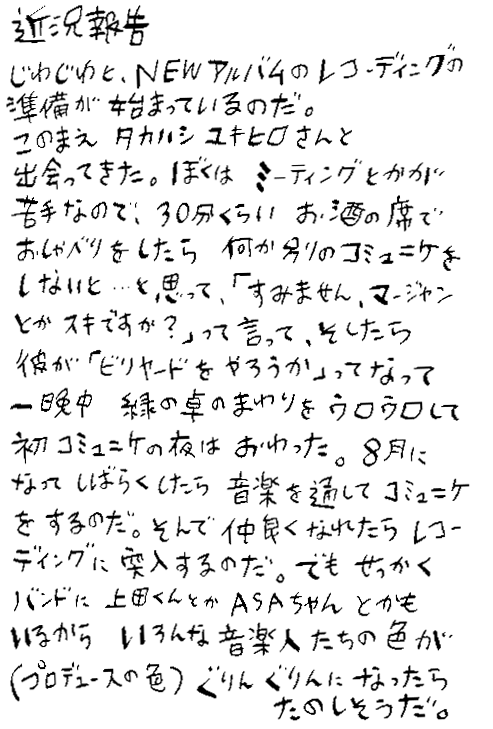 近況報告
じわじわと、NEWアルバムのレコーディングの
準備が始まっているのだ。
このまえ タカハシ ユキヒロさんと
出会ってきた。ぼくは ミーティングとかが
苦手なので、30分くらい お酒の席で
おしゃべりをしたら 何か別のコミュニケを
しないと…と思って、「すみません、マージャン
とか スキですか?」って言って、そしたら
彼が「ビリヤードをやろうか」ってなって
一晩中 緑の卓のまわりをウロウロして
初コミュニケの夜は おわった。8月に
なって しばらくしたら 音楽を通して コミュニケ
をするのだ。そんで仲良くなれたら レコー
ディングに突入するのだ。でも せっかく
バンドに 上田くんとか ASAちゃん とかも
いるから いろんな音楽人たちの色が
(プロデュースの色) ぐりんぐりんになったら
たのしそうだ。